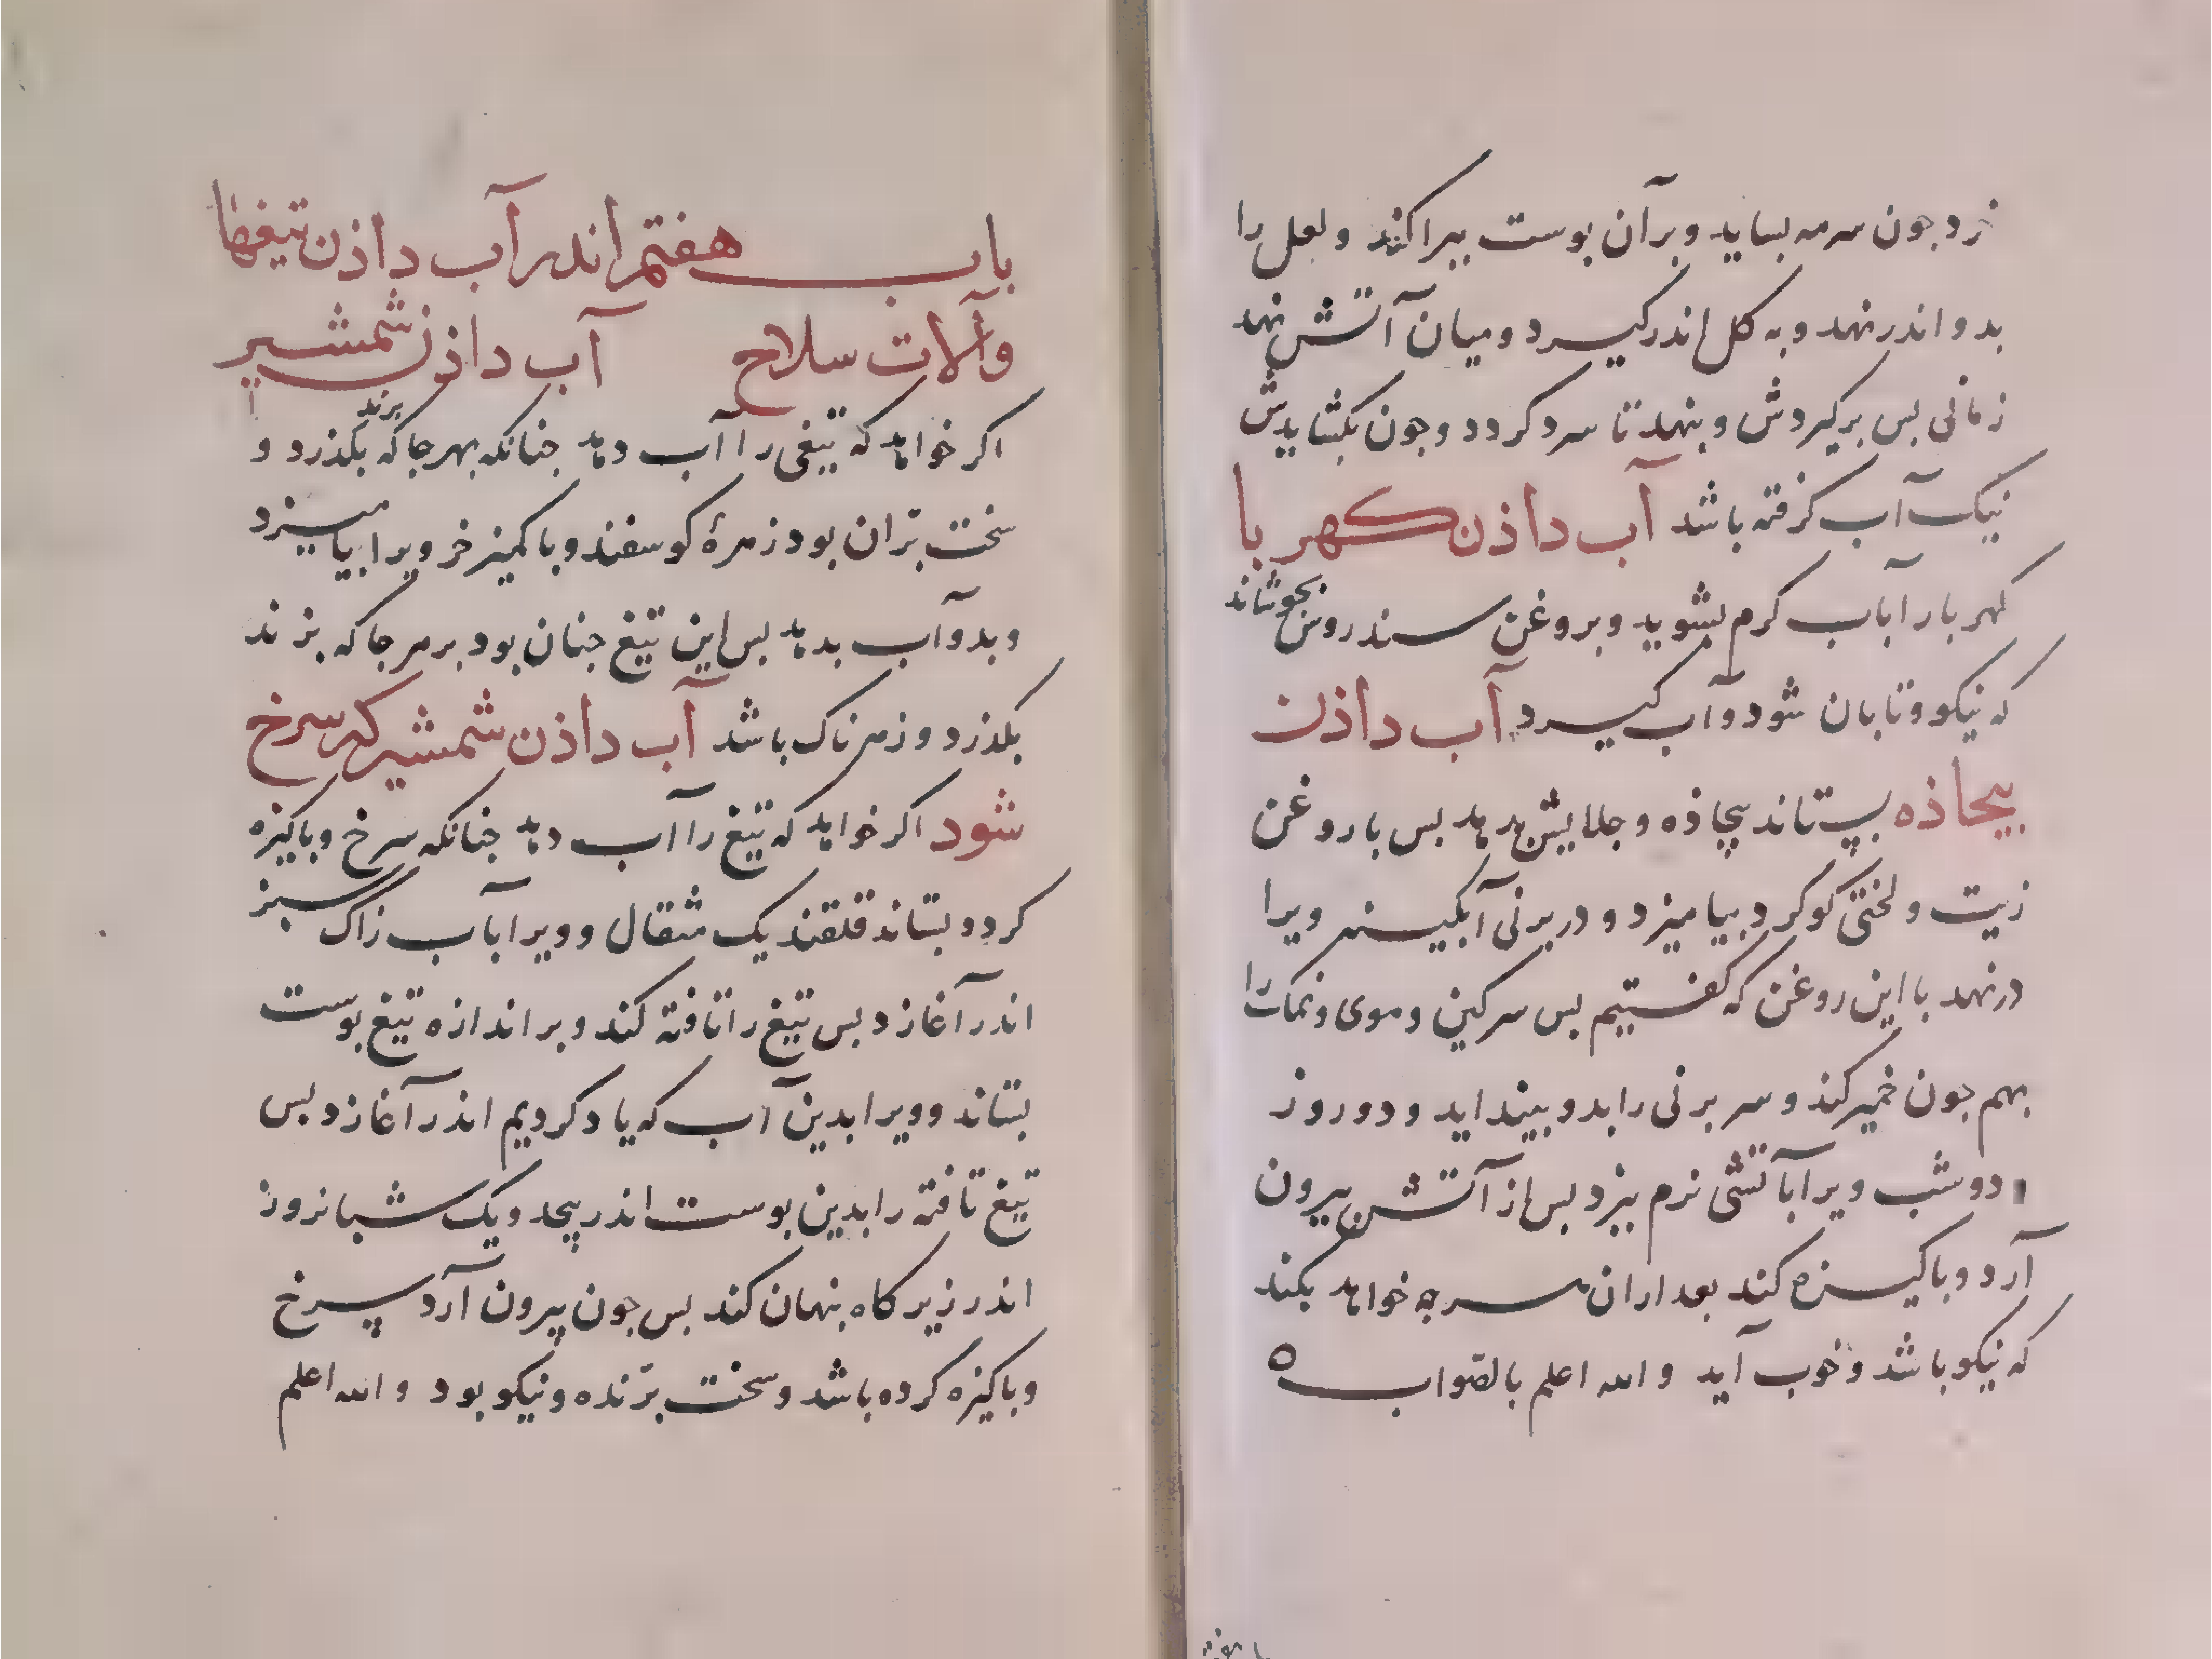 خرد جون سرمه بساید و بر آن بوست ببراکند و لعل را
بدو اندر نهد و به کل اندر کیرد و میان آتش نهد
زمانی بس برکیردش و بنهد تا سرد کردد و جون بکشایدش
نیک آب کرفته باشد آب داذن کهربا
کهربا را بآب کرم بشوید و بروغن سندروس بجوشاند
که نیکو و تابان شود و آب کیرد آب داذن
بیجاذه بستاند بیجاذه و جلایش بدهد بس با روغن
زیت و لختی کوکرد بیامیزد و در برنی آبکینه ویرا
در نهد با این روغن که کفتیم بس سرکین و موی و نمک را
بهم جون خمیر کند و سر برنی را بدو بینداید و دو روز
دو شب ویرا بآتشی نرم ببزد بس از آتش بیرون
آرد و باکیزه کند بعد ازان هر جه خواهد بکند
که نیکو باشد و خوب آید و الله اعلم بالصّواب ه
باب هفتم اندر آب داذن تیغها
و آلات سلاح آب داذن شمشیر
اکر خواهد که تیغی را آب دهد جنانکه بهر جا که برند بکذرد و
سخت بّران بود زهرهٔ کوسفند و با کمیز خر ویرا بیامیزد
و بدو آب بدهد بس این تیغ جنان بود بر هر جا که بزند
بکذرد و زهرناک باشد آب داذن شمشیر کی سرخ
شود اکر خواهد که تیغ را آب دهد جنانکه سرخ و باکیزه
کردد بستاند قلقند یک مثقال و ویرا بآب زاک سبز
اندر آغازد بس تیغ را تافته کند و بر اندازه تیغ بوست
بستاند و ویرا بدین آب که یاد کردیم اندر آغازد بس
تیغ تافته را بدین بوست اندر پیجد و یک شبانروز
اندر زیر کاه بنهان کند بس جون بیرون آرد سرخ
و باکیزه کرده باشد و سخت برّنده و نیکو بود و الله اعلم